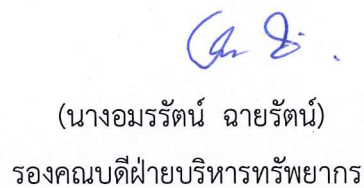 (นางอมรรัตน์ ฉายรัตน์)
รองคณบดีฝ่ายบริหารทรัพยากร